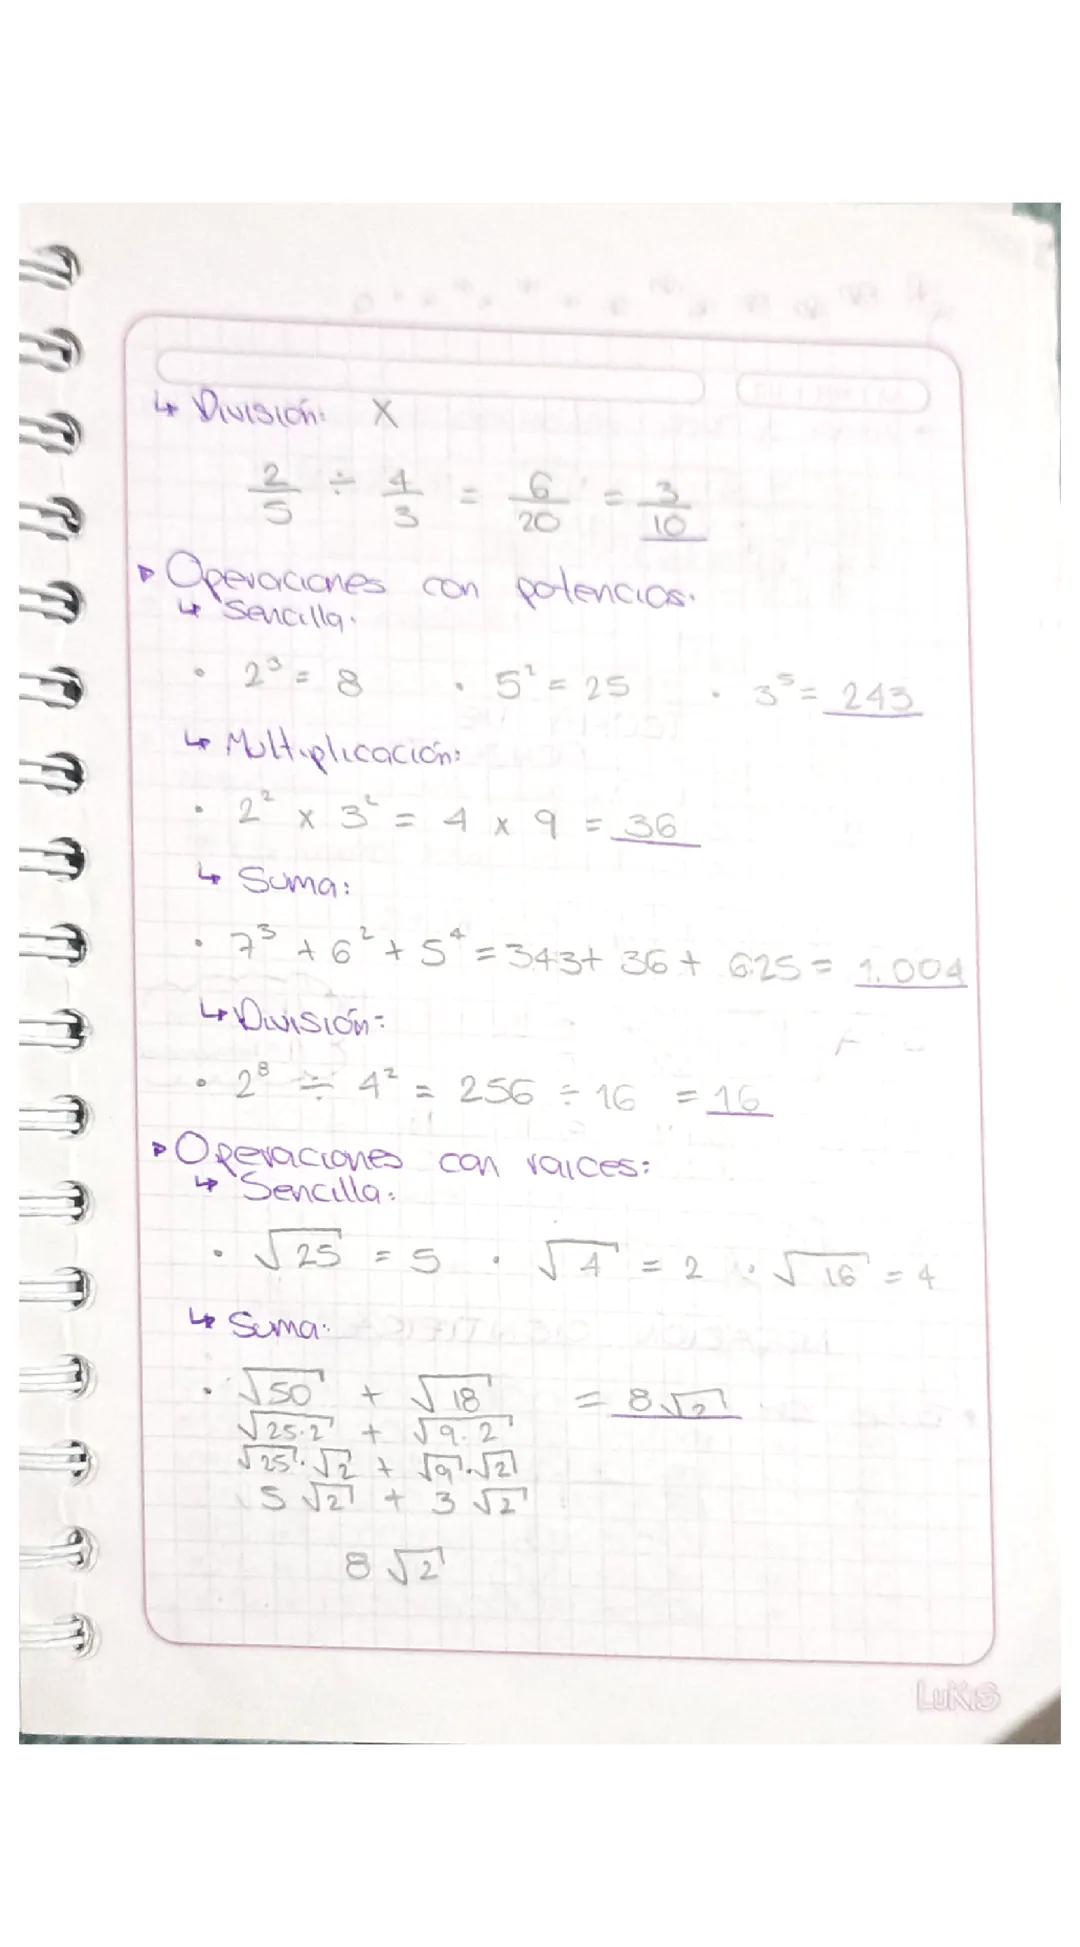 ↳ División: X
2/5 ÷ 4/3 = 6/20 = 3/10
▸ Operaciones con potencias.
↳ Sencilla.
• 2³ = 8 • 5² = 25 • 3⁵ = 243
↳ Multiplicación:
• 2² x 3² = 4 x 9 = 36
↳ Suma:
• 7³ + 6² + 5⁴ = 343 + 36 + 625 = 1.004
↳ División:
• 2⁸ ÷ 4² = 256 ÷ 16 = 16
▸ Operaciones con raíces:
↳ Sencilla:
• √25 = 5 • √4 = 2 • √16 = 4
↳ Suma:
• √50 + √18 = 8√2
√25·2 + √9·2
√25·√2 + √9·√2
5√2 + 3√2
8√2
LUKIS